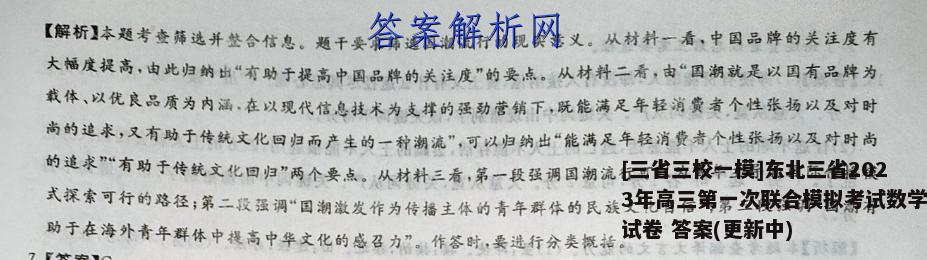 答案解析网
【解析】本题考查筛选并整合信息。题干要求筛选国潮流行的现实意义。从材料一看,中国品牌的关注度有
大幅度提高,由此归纳出“有助于提高中国品牌的关注度”的要点。从材料二看,由“国潮就是以国有品牌为
载体、以优良品质为内涵,在以现代信息技术为支撑的强劲营销下,既能满足年轻消费者个性张扬以及对时
尚的追求,又有助于传统文化回归而产生的一种潮流”,可以归纳出“能满足年轻消费者个性张扬以及对时尚
的追求”“有助于传统文化回归”两个要点。从材料三看,第一段强调国潮流
[三省三校一模]东北三省202
3年高三第一次联合模拟考试数学
试卷 答案(更新中)
式探索可行的路径;第二段强调“国潮激发作为传播主体的青年群体的民族文
助于在海外青年群体中提高中华文化的感召力”。作答时,要进行分类概括。
7.【答案】C